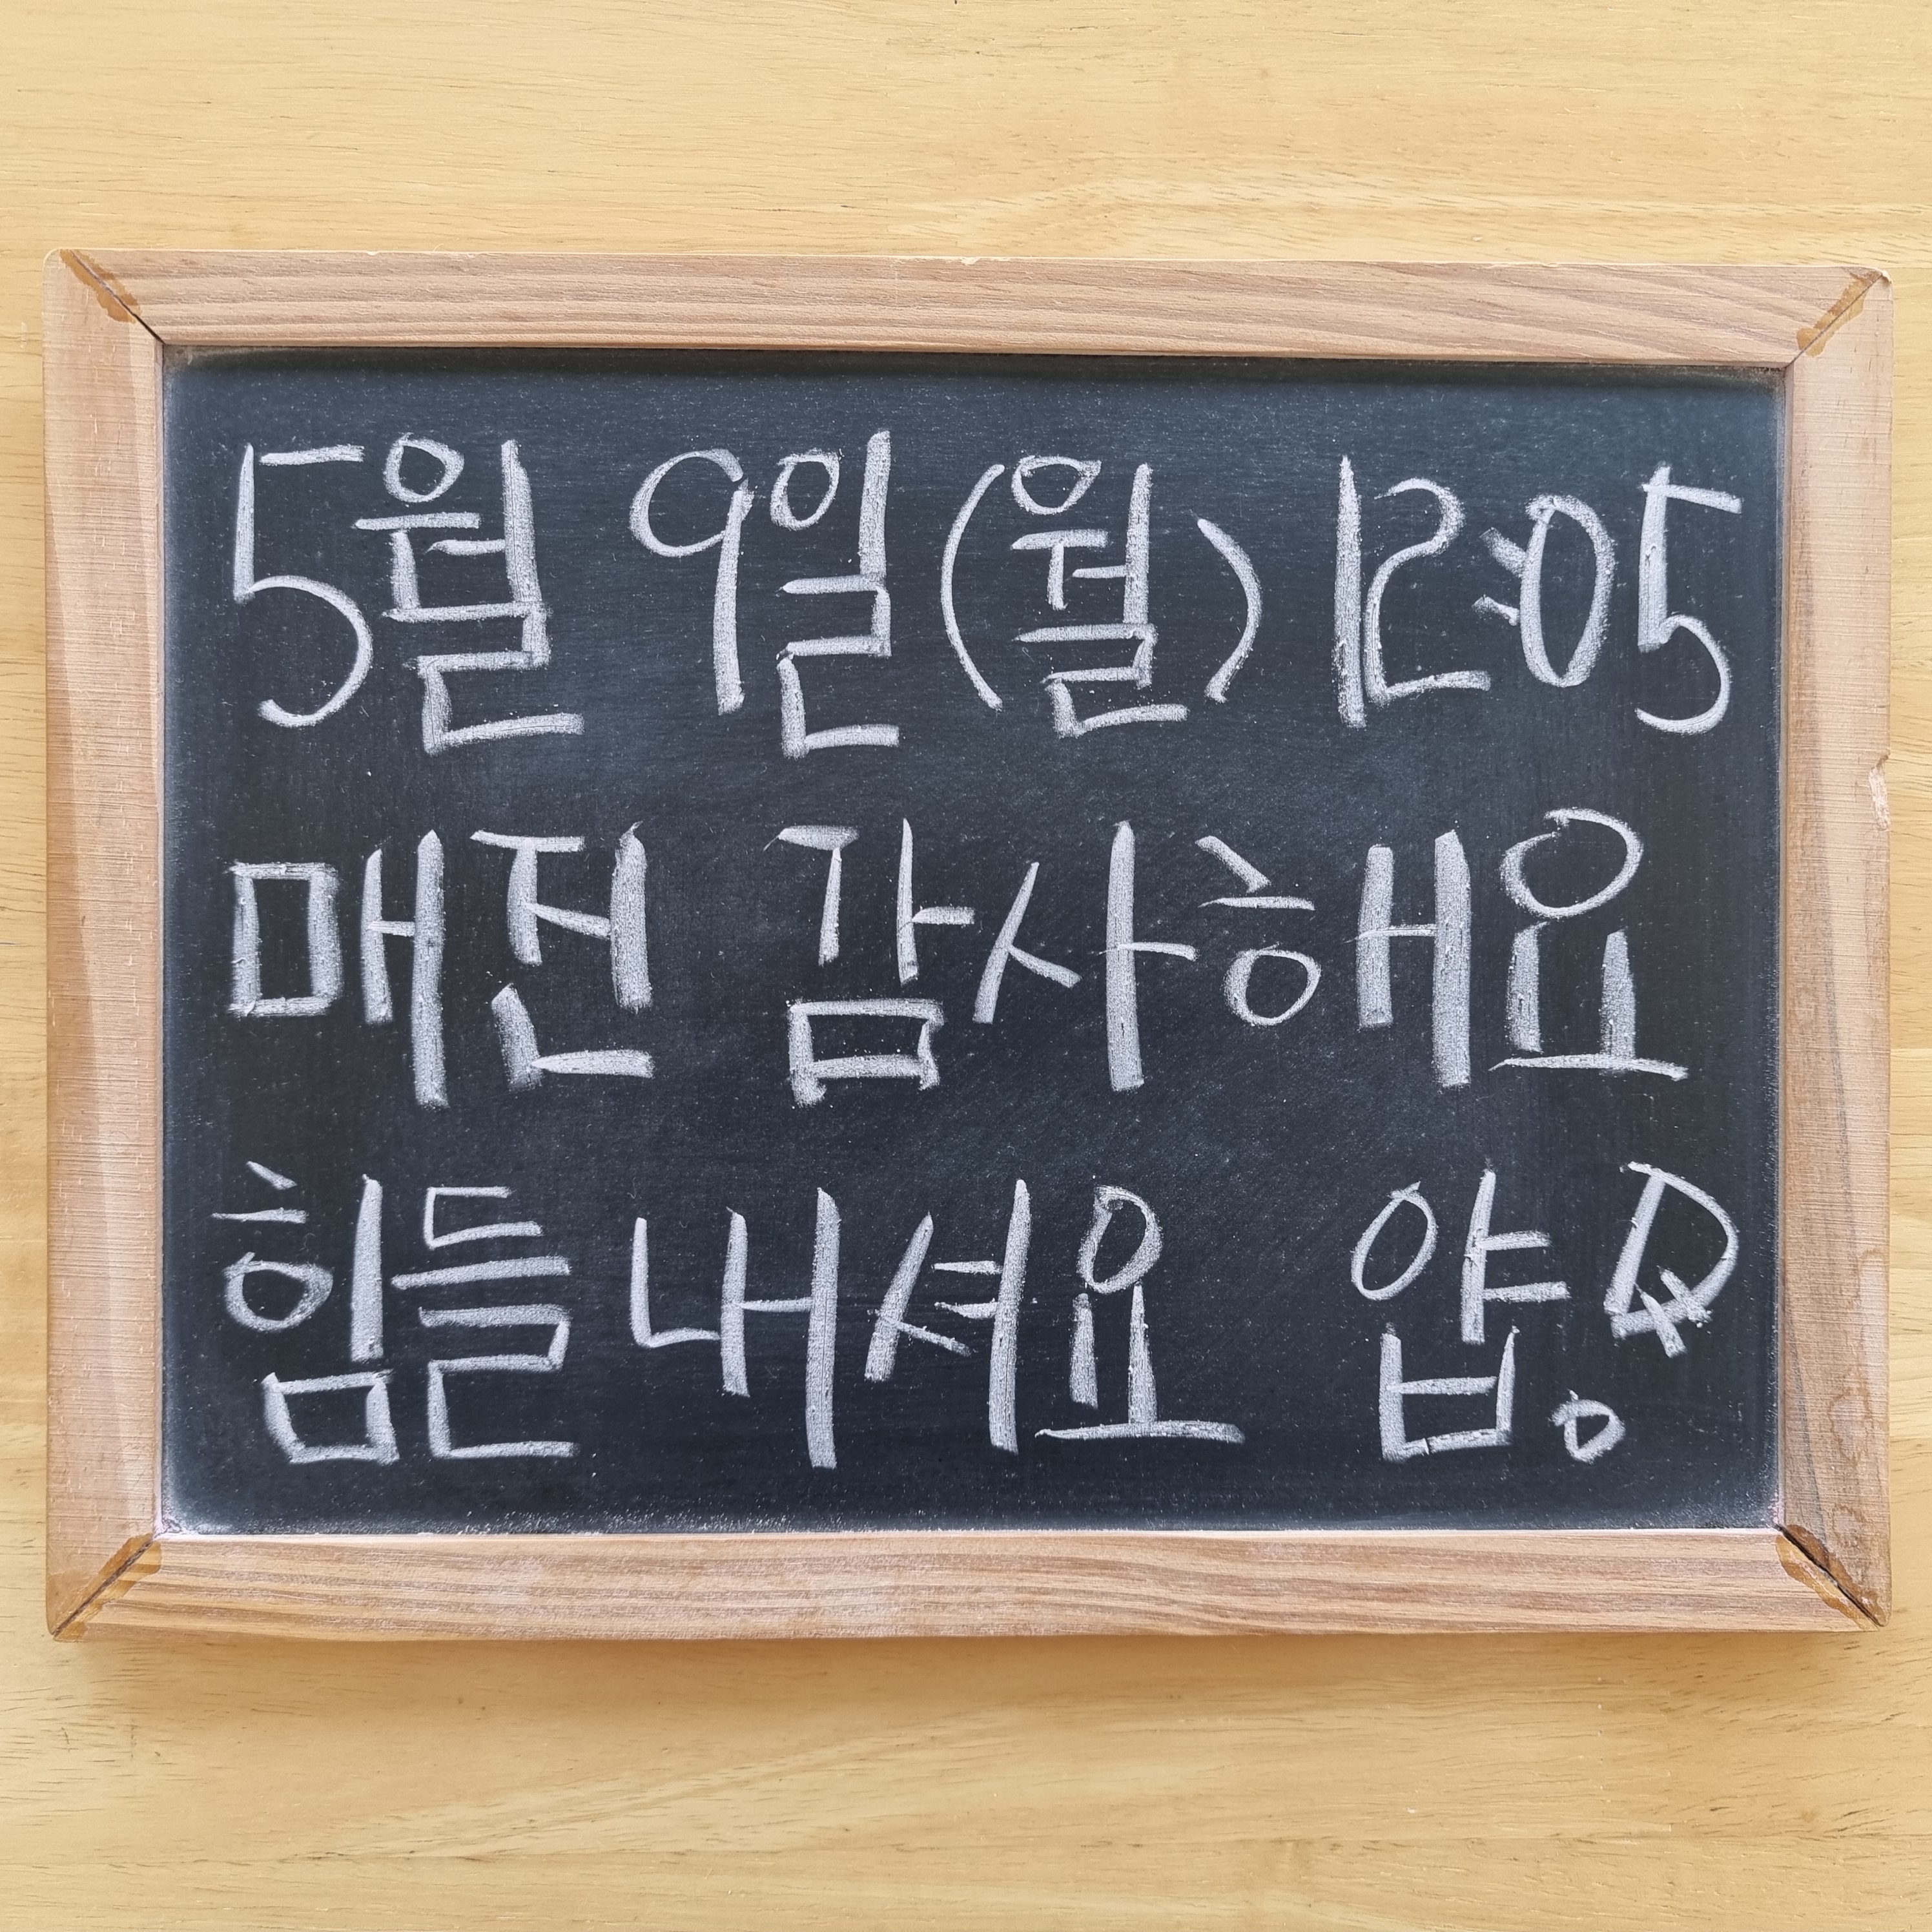 5월 9일(월) 12:05
매진 감사해요
힘들내셔요 얍。